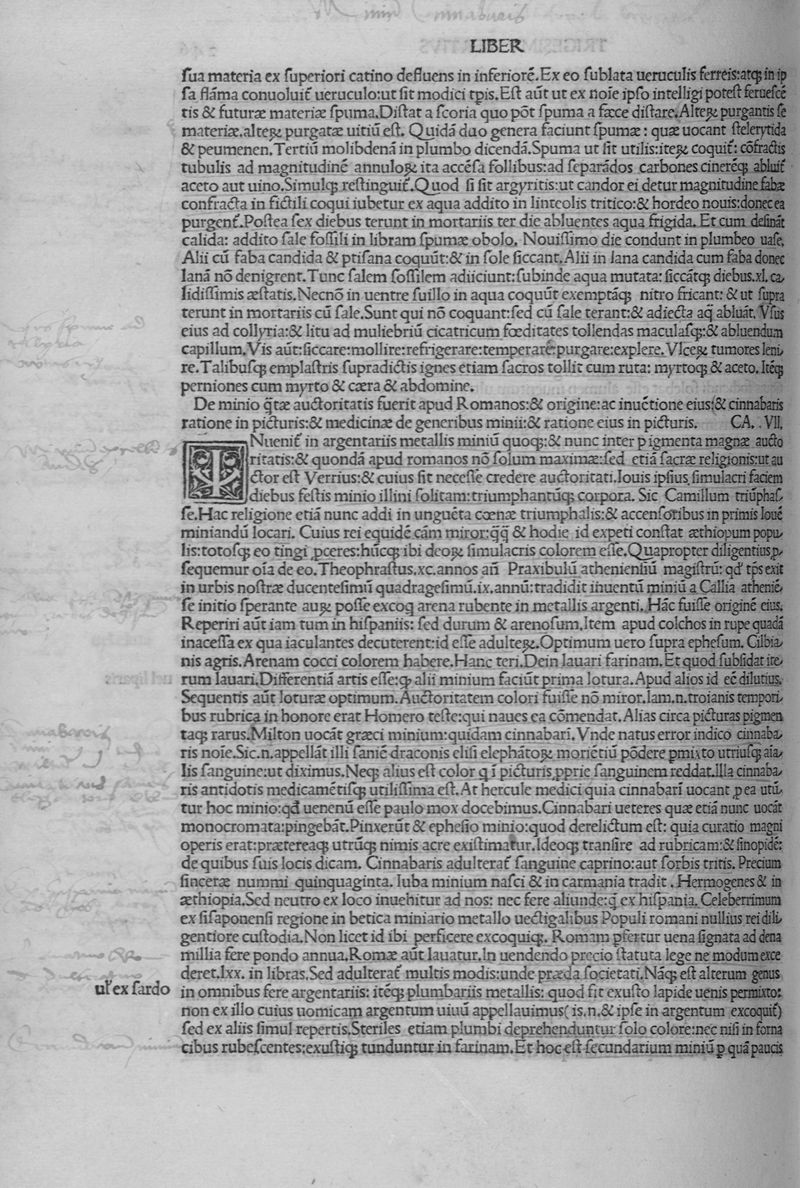 LIBER
sua materia ex superiori catino defluens in inferiorē.Ex eo sublata ueruculis ferreis:atqꝫ in ip
sa flāma conuoluit᷑ ueruculo:ut sit modici tp̄is.Est aūt ut ex noīe ipso intelligi potest feruescē
tis & futuræ materiæ spuma.Distat a scoria quo pōt spuma a fæce distare.Alteꝝ purgantis se
materiæ.alteꝝ purgatæ uitiū est. Quidā duo genera faciunt spumæ: quæ uocant stelerytida
& peumenen.Tertiū molibdenā in plumbo dicendā.Spuma ut sit utilis:iteꝝ coquit᷑: cōfractis
tubulis ad magnitudinē annuloꝝ ita accēsa follibus:ad separādos carbones cinerēqꝫ abluit᷑
aceto aut uino.Simulqꝫ restinguit᷑.Quod si sit argyritis:ut candor ei detur magnitudine fabæ
confracta in fictili coqui iubetur ex aqua addito in linteolis tritico:& hordeo nouis:donec ea
purgent᷑.Postea sex diebus terunt in mortariis ter die abluentes aqua frigida. Et cum defināt
calida: addito sale fossili in libram spumæ obolo. Nouissimo die condunt in plumbeo uase.
Alii cū faba candida & ptisana coquūt:& in sole siccant.Alii in lana candida cum faba donec
lanā nō denigrent.Tunc salem fossilem adiiciunt:subinde aqua mutata: siccātqꝫ diebus.xl. ca
lidissimis æstatis.Necnō in uentre suillo in aqua coquūt exemptāqꝫ nitro fricant: & ut supra
terunt in mortariis cū sale.Sunt qui nō coquant:sed cū sale terant:& adiecta aq̄ abluāt. Vsus
eius ad collyria:& litu ad muliebriū cicatricum fœditates tollendas maculasqꝫ:& abluendum
capillum.Vis aūt:siccare:mollire:refrigerare:temperare:purgare:explere.Vlceꝝ tumores leni
re.Talibusqꝫ emplastris supradictis ignes etiam sacros tollit cum ruta: myrtoqꝫ & aceto. Itēqꝫ
perniones cum myrto & cæra & abdomine.
De minio q̄tæ auctoritatis fuerit apud Romanos:& origine:ac inuētione eius:& cinnabaris
ratione in picturis:& medicinæ de generibus minii:& ratione eius in picturis. CA, . VII.
INuenit᷑ in argentariis metallis miniū quoqꝫ:& nunc inter pigmenta magnæ aucto
ritatis:& quondā apud romanos nō solum maximæ:sed etiā sacræ religionis:ut au
ctor est Verrius:& cuius sit necesse credere auctoritati.Iouis ipsius simulacri faciem
diebus festis minio illini solitam:triumphantūqꝫ corpora. Sic Camillum triūphas
se.Hac religione etiā nunc addi in unguēta cœnæ triumphalis:& accensoribus in primis Ioué
miniandū locari. Cuius rei equidē cām miror:q̄q̄ & hodie id expeti constat æthiopum popu
lis:totosqꝫ eo tingi ꝓceres:hūcqꝫ ibi deoꝝ simulacris colorem esse.Quapropter diligentius ꝓ
sequemur oīa de eo.Theophrastus.xc.annos añ Praxibulū atheniensiū magistrū: qd᷑ tp̄s exit
in urbis nostræ ducentesimū quadragesimū.ix.annū:tradidit inuentū miniū a Callia atheniē
se initio sperante auꝝ posse excoq arena rubente in metallis argenti. Hāc fuisse originē eius.
Reperiri aūt iam tum in hispaniis: sed durum & arenosum.Item apud colchos in rupe quadā
inaccessa ex qua iaculantes decuterent:id esse adulteꝝ.Optimum uero supra ephesum. Cilbia
nis agris.Arenam cocci colorem habere.Hanc teri.Dein lauari farinam.Et quod subsidat ite
rum lauari.Differentiā artis esse:qꝫ alii minium faciūt prima lotura.Apud alios id eē dilutius.
Sequentis aūt loturæ optimum.Auctoritatem colori fuisse nō miror.Iam.n.troianis tempori
bus rubrica in honore erat Homero teste:qui naues ea cōmendat.Alias circa picturas pigmen
taqꝫ rarus.Milton uocāt græci minium:quidam cinnabarī.Vnde natus error indico cinnaba
ris noīe.Sic.n.appellāt illi saniē draconis elisi elephātoꝝ moriētiū pōdere pmixto utriusqꝫ aīa
lis sanguine:ut diximus.Neqꝫ alius est color q ī picturis ꝓprie sanguinem reddat.Illa cinnaba
ris antidotis medicamētisqꝫ utilissima est.At hercule medici quia cinnabarī uocant ꝓ ea utū
tur hoc minio:qd᷑ uenenū esse paulo mox docebimus.Cinnabari ueteres quæ etiā nunc uocāt
monocromata:pingebāt.Pinxerūt & ephesio minio:quod derelictum est: quia curatio magni
operis erat:prætereaqꝫ utrūqꝫ nimis acre existimatur.Ideoqꝫ transire ad rubricam:& sinopidē:
de quibus suis locis dicam. Cinnabaris adulterat᷑ sanguine caprino:aut sorbis tritis. Precium
sinceræ nummi quinquaginta. Iuba minium nasci & in carmania tradit . Hermogenes & in
æthiopia.Sed neutro ex loco inuehitur ad nos: nec fere aliunde:q̄ ex hispania. Celeberrimum
ex sisaponensi regione in betica miniario metallo uectigalibus Populi romani nullius rei dili
gentiore custodia.Non licet id ibi perficere excoquiqꝫ. Romam pfertur uena signata ad dena
millia fere pondo annua.Romæ aūt lauatur.In uendendo precio statuta lege ne modum exce
deret.lxx. in libras.Sed adulterat᷑ multis modis:unde præda societati.Nāqꝫ est alterum genus
uł ex fardo
in omnibus fere argentariis: itēqꝫ plumbariis metallis: quod fit exusto lapide uenis permixto:
non ex illo cuius uomicam argentum uiuū appellauimus( is.n.& ipse in argentum excoquit᷑)
sed ex aliis simul repertis.Steriles etiam plumbi deprehenduntur solo colore:nec nisi in forna
cibus rubescentes:exustiqꝫ tunduntur in farinam.Et hoc est secundarium miniū p quā paucis